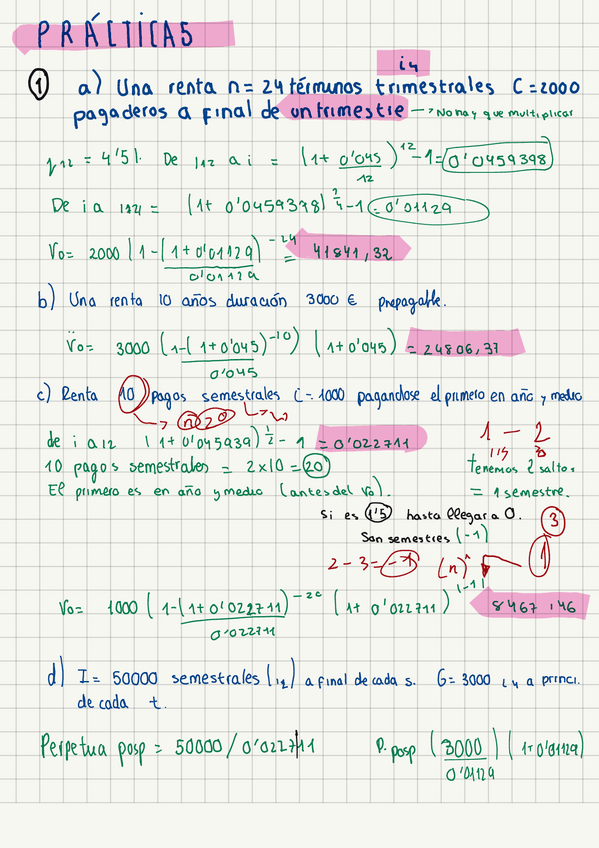 PRÁCTICAS
i4
① a) Una renta n = 24 términos trimestrales C = 2000
pagaderos a final de un trimestre → No hay que multiplicar
J12 = 4'5%. De J12 a i = (1 + 0'045/12)^12 - 1 = 0'0459398
De i a i4 = (1 + 0'0459398)^1/4 - 1 = 0'01129
Vo = 2000 (1 - (1 + 0'01129)^-24 / 0'01129) = 41841,32
b) Una renta 10 años duración 3000 € prepagable.
V̈o = 3000 (1 - (1 + 0'045)^-10 / 0'045) (1 + 0'045) = 24806,37
c) Renta 10 pagos semestrales C = 1000 pagandose el primero en año y medio
→ n 20
de i a i2 (1 + 0'045939)^1/2 - 1 = 0'022711
1 - 2
1'5
10 pagos semestrales = 2x10 = 20
tenemos 2 saltos.
El primero es en año y medio (antes del Vo).
= 1 semestre.
Si es 1'5 hasta llegar a 0.
3
Son semestres (-1)
2 - 3 = -1
(n)
1
Vo = 1000 (1 - (1 + 0'022711)^-20 / 0'022711) (1 + 0'022711)^(-1) 8467,46
d) I = 50000 semestrales (i2) a final de cada s. G = 3000 i4 a princi.
de cada t.
Perpetua posp = 50000 / 0'022711
P. posp (3000 / 0'01129) (1 + 0'01129)